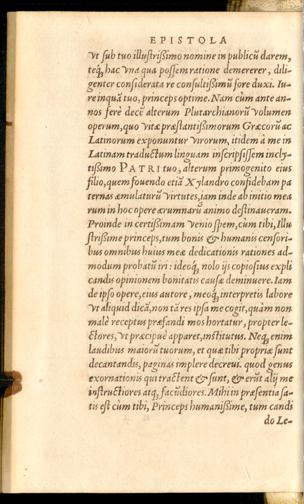 EPISTOLA
vt sub tuo illustrißimo nomine in publicũ darem,
teq́, hac vna qua possem ratione demererer, dili-
genter considerata re consultißimũ fore duxi. Iu-
re inquã tuo, princeps optime. Nam cùm ante an-
nos ferè decẽ alterum Plutarchianorũ volumen
operum, quo vitæ præstantißimorum Græcorũ ac
Latinorum exponuntur virorum, itidem à me in
Latinam traductum linguam inscripsissem incly-
tißimo PATRI tuo, alterum primogenito eius
filio, quem fouendo etiã Xylandro confidebam pa
ternas æmulaturũ virtutes, iam inde ab initio mea
rum in hoc opere ærumnarũ animo destinaueram.
Proinde in certißimam venio spem, cùm tibi, Illu
strißime princeps, tum bonis & humanis censori-
bus omnibus huius meæ dedicationis rationes ad-
modum probatũ iri: ideoq́, nolo ijs copiosius expli
candis opinionem bonitatis causæ deminuere. Iam
de ipso opere, eius autore, meoq́, interpretis labore
vt aliquid dicã, non tã res ipsa me cogit, quàm non
malè receptus præfandi mos hortatur, propter le-
ctores, vt præcipuè apparet, institutus. Neq́, enim
laudibus maiorũ tuorum, et quæ tibi propriæ sunt
decantandis, paginas implere decreui. quod genus
exornationis qui tractent & sunt, & erũt alij me
instructiores atq́, facũdiores. Mihi in præsentia sa-
tis est cùm tibi, Princeps humanißime, tum candi
do Le-